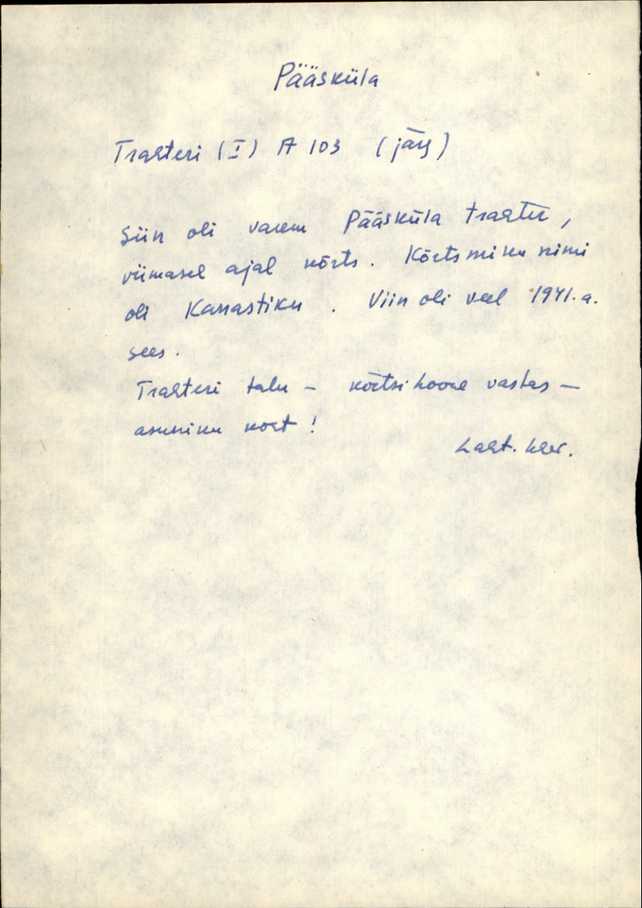 Pääsküla
Trahteri (I) A 103 (järg)
Siin oli varem Pääsküla trahter,
viimasel ajal kõrts. Kõrtsmiku nimi
oli Kanastiku. Viin oli veel 1941. a.
sees.
Trahteri talu - kõrtsihoone vastas -
asuniku koht!